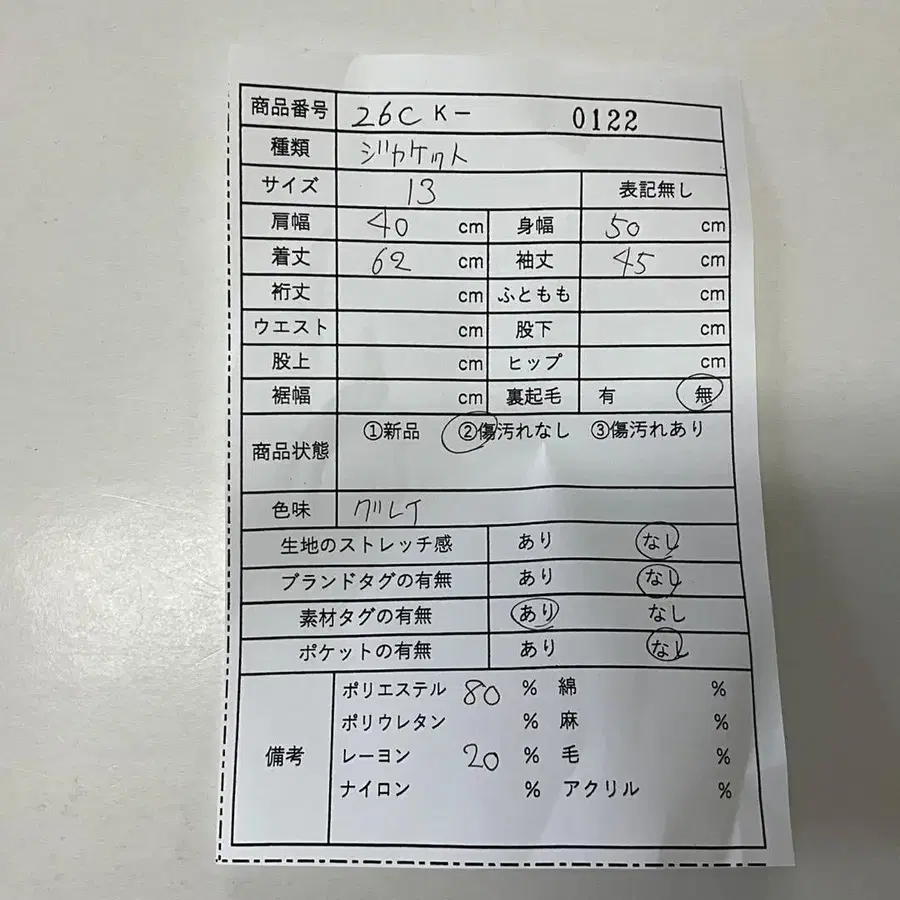 商品番号 26C K- 0122
種類 ジャケット
サイズ 13 表記無し
肩幅 40 cm 身幅 50 cm
着丈 62 cm 袖丈 45 cm
裄丈 cm ふともも cm
ウエスト cm 股下 cm
股上 cm ヒップ cm
裾幅 cm 裏起毛 有 無
商品状態 ①新品 ②傷汚れなし ③傷汚れあり
色味 グレイ
生地のストレッチ感 あり なし
ブランドタグの有無 あり なし
素材タグの有無 あり なし
ポケットの有無 あり なし
備考
ポリエステル 80 % 綿 %
ポリウレタン % 麻 %
レーヨン 20 % 毛 %
ナイロン % アクリル %